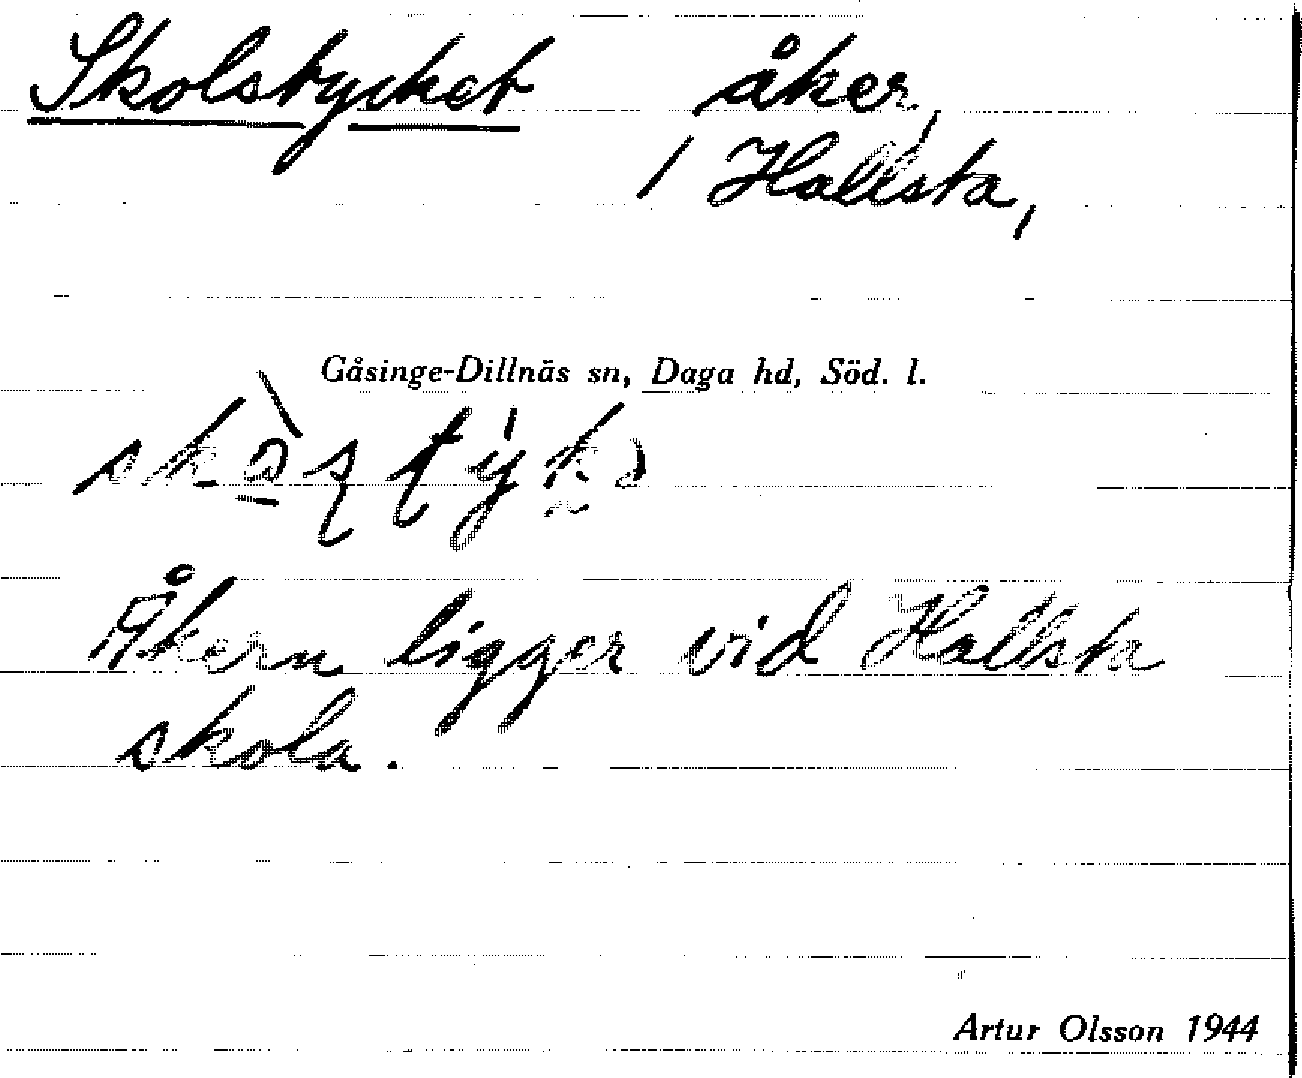 Skolstycket åker,
/ Hallsta,
Gåsinge-Dillnäs sn, Daga hd, Söd. l.
Åkern ligger vid Hallsta
skola.
Artur Olsson 1944